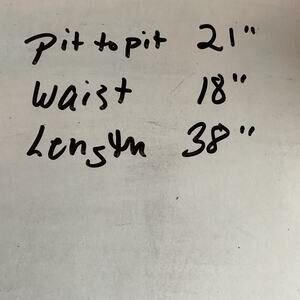 pit to pit 21"
Waist 18"
Length 38"